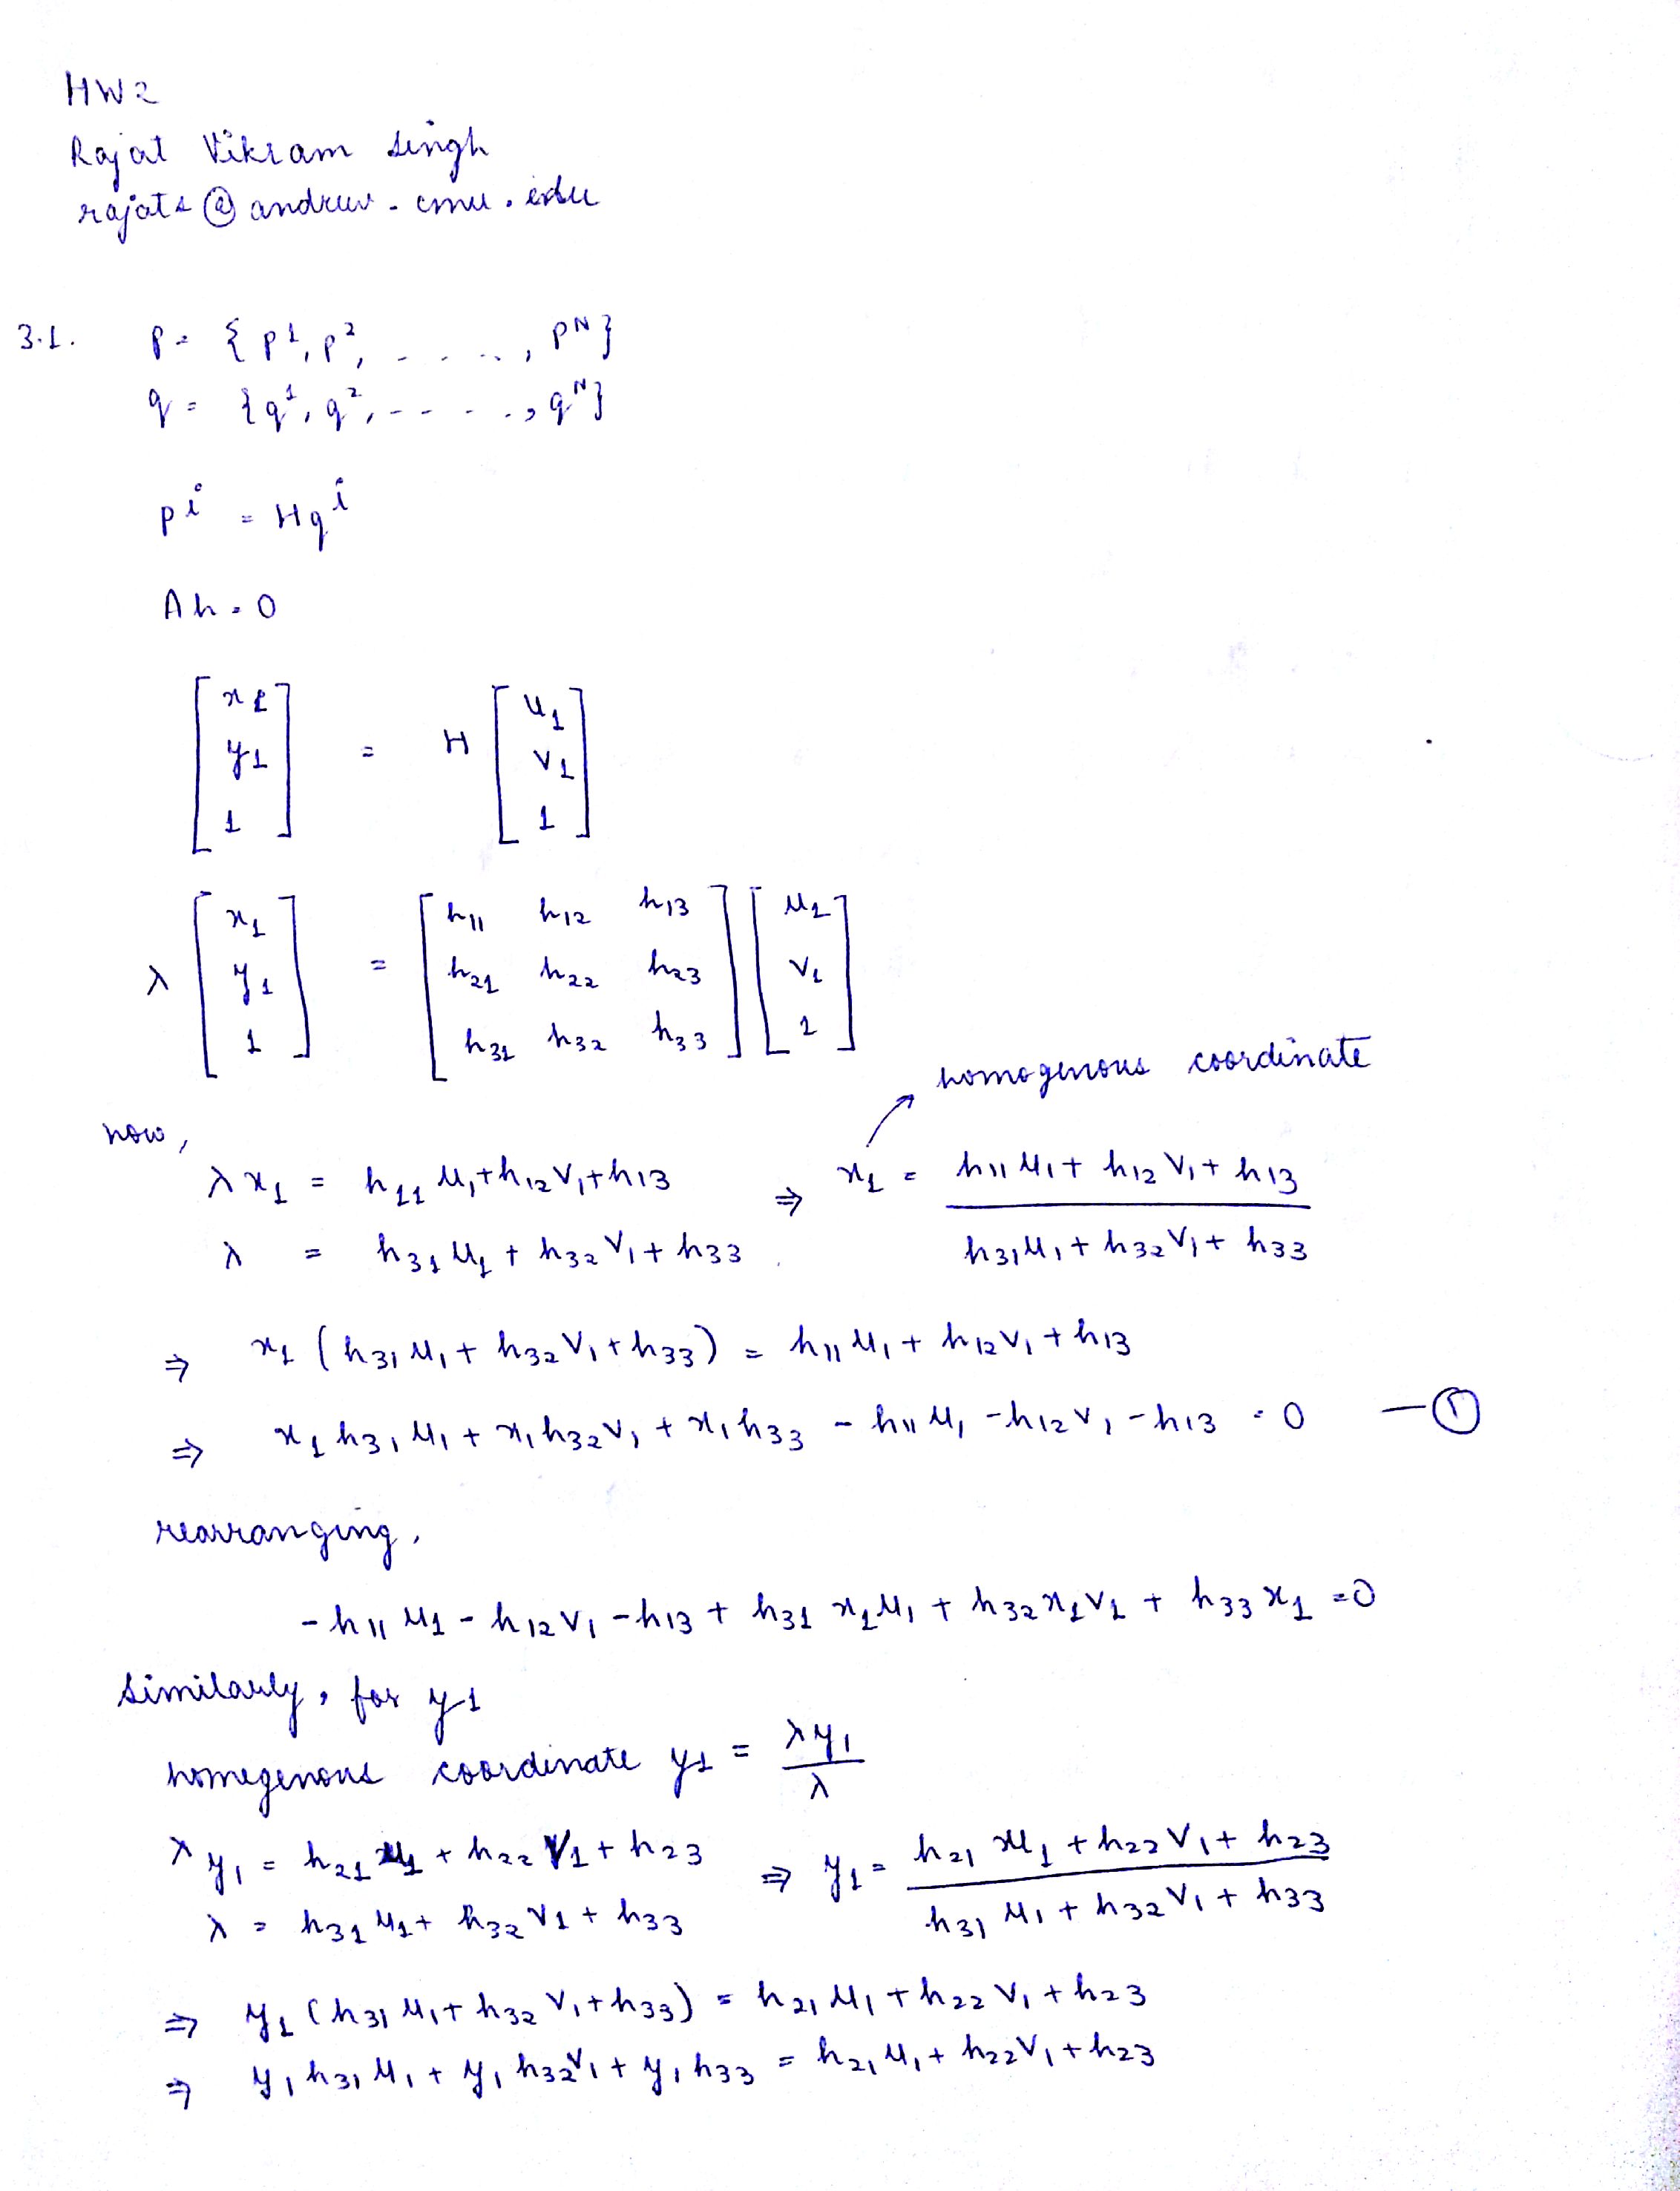 HW2
Rajat Vikram Singh
rajats@andrew.cmu.edu
3.1. p = { p¹, p², - - - - -, pᴺ }
q = { q¹, q², - - - - -, qᴺ }
pⁱ = Hqⁱ
Ah = 0
[ x₁ y₁ 1 ] = H [ u₁ v₁ 1 ]
λ [ x₁ y₁ 1 ] = [ h₁₁ h₁₂ h₁₃ h₂₁ h₂₂ h₂₃ h₃₁ h₃₂ h₃₃ ] [ u₁ v₁ 1 ]
homogenous coordinate
now,
λx₁ = h₁₁u₁ + h₁₂v₁ + h₁₃ ⇒ x₁ = (h₁₁u₁ + h₁₂v₁ + h₁₃) / (h₃₁u₁ + h₃₂v₁ + h₃₃)
λ = h₃₁u₁ + h₃₂v₁ + h₃₃
⇒ x₁ (h₃₁u₁ + h₃₂v₁ + h₃₃) = h₁₁u₁ + h₁₂v₁ + h₁₃
⇒ x₁h₃₁u₁ + x₁h₃₂v₁ + x₁h₃₃ - h₁₁u₁ - h₁₂v₁ - h₁₃ = 0 — ①
rearranging,
-h₁₁u₁ - h₁₂v₁ - h₁₃ + h₃₁x₁u₁ + h₃₂x₁v₁ + h₃₃x₁ = 0
Similarly, for y₁
homegenous coordinate y₁ = λy₁ / λ
λy₁ = h₂₁u₁ + h₂₂v₁ + h₂₃ ⇒ y₁ = (h₂₁u₁ + h₂₂v₁ + h₂₃) / (h₃₁u₁ + h₃₂v₁ + h₃₃)
λ = h₃₁u₁ + h₃₂v₁ + h₃₃
⇒ y₁ (h₃₁u₁ + h₃₂v₁ + h₃₃) = h₂₁u₁ + h₂₂v₁ + h₂₃
⇒ y₁h₃₁u₁ + y₁h₃₂v₁ + y₁h₃₃ = h₂₁u₁ + h₂₂v₁ + h₂₃